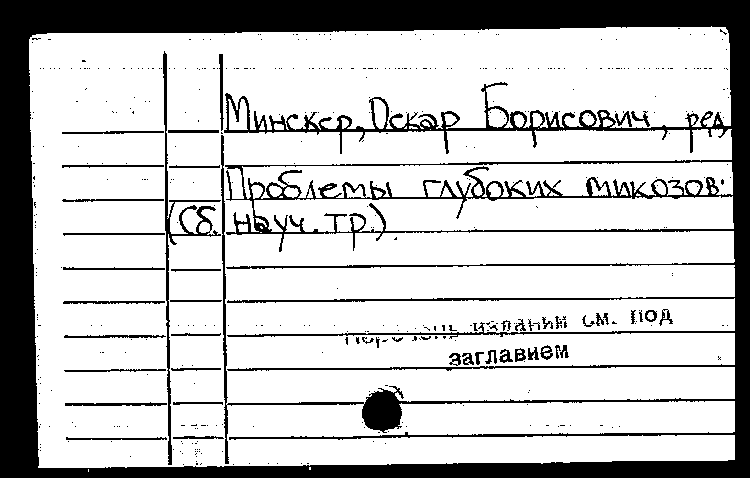 Минскер, Оскар Борисович, ред.
Проблемы глубоких микозов:
(Сб. науч. тр.).
Перечень изданий см. под
заглавием